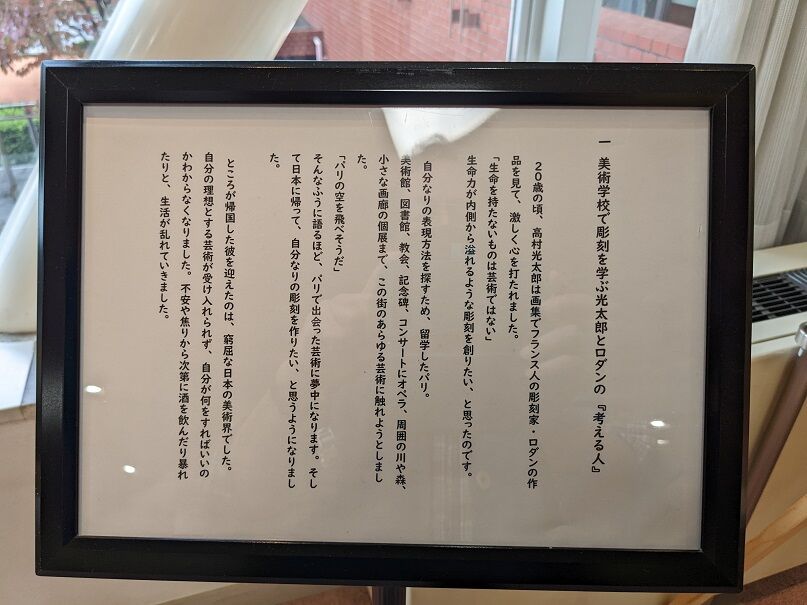 一 美術学校で彫刻を学ぶ光太郎とロダンの『考える人』
20歳の頃、高村光太郎は画集でフランス人の彫刻家・ロダンの作
品を見て、激しく心を打たれました。
「生命を持たないものは芸術ではない」
生命力が内側から溢れるような彫刻を創りたい、と思ったのです。
自分なりの表現方法を探すため、留学したパリ。
美術館、図書館、教会、記念碑、コンサートにオペラ、周囲の川や森、
小さな画廊の個展まで、この街のあらゆる芸術に触れようとしまし
た。
「パリの空を飛べそうだ」
そんなふうに語るほど、パリで出会った芸術に夢中になります。そし
て日本に帰って、自分なりの彫刻を作りたい、と思うようになりまし
た。
ところが帰国した彼を迎えたのは、窮屈な日本の美術界でした。
自分の理想とする芸術が受け入れられず、自分が何をすればいいの
かわからなくなりました。不安や焦りから次第に酒を飲んだり暴れ
たりと、生活が乱れていきました。